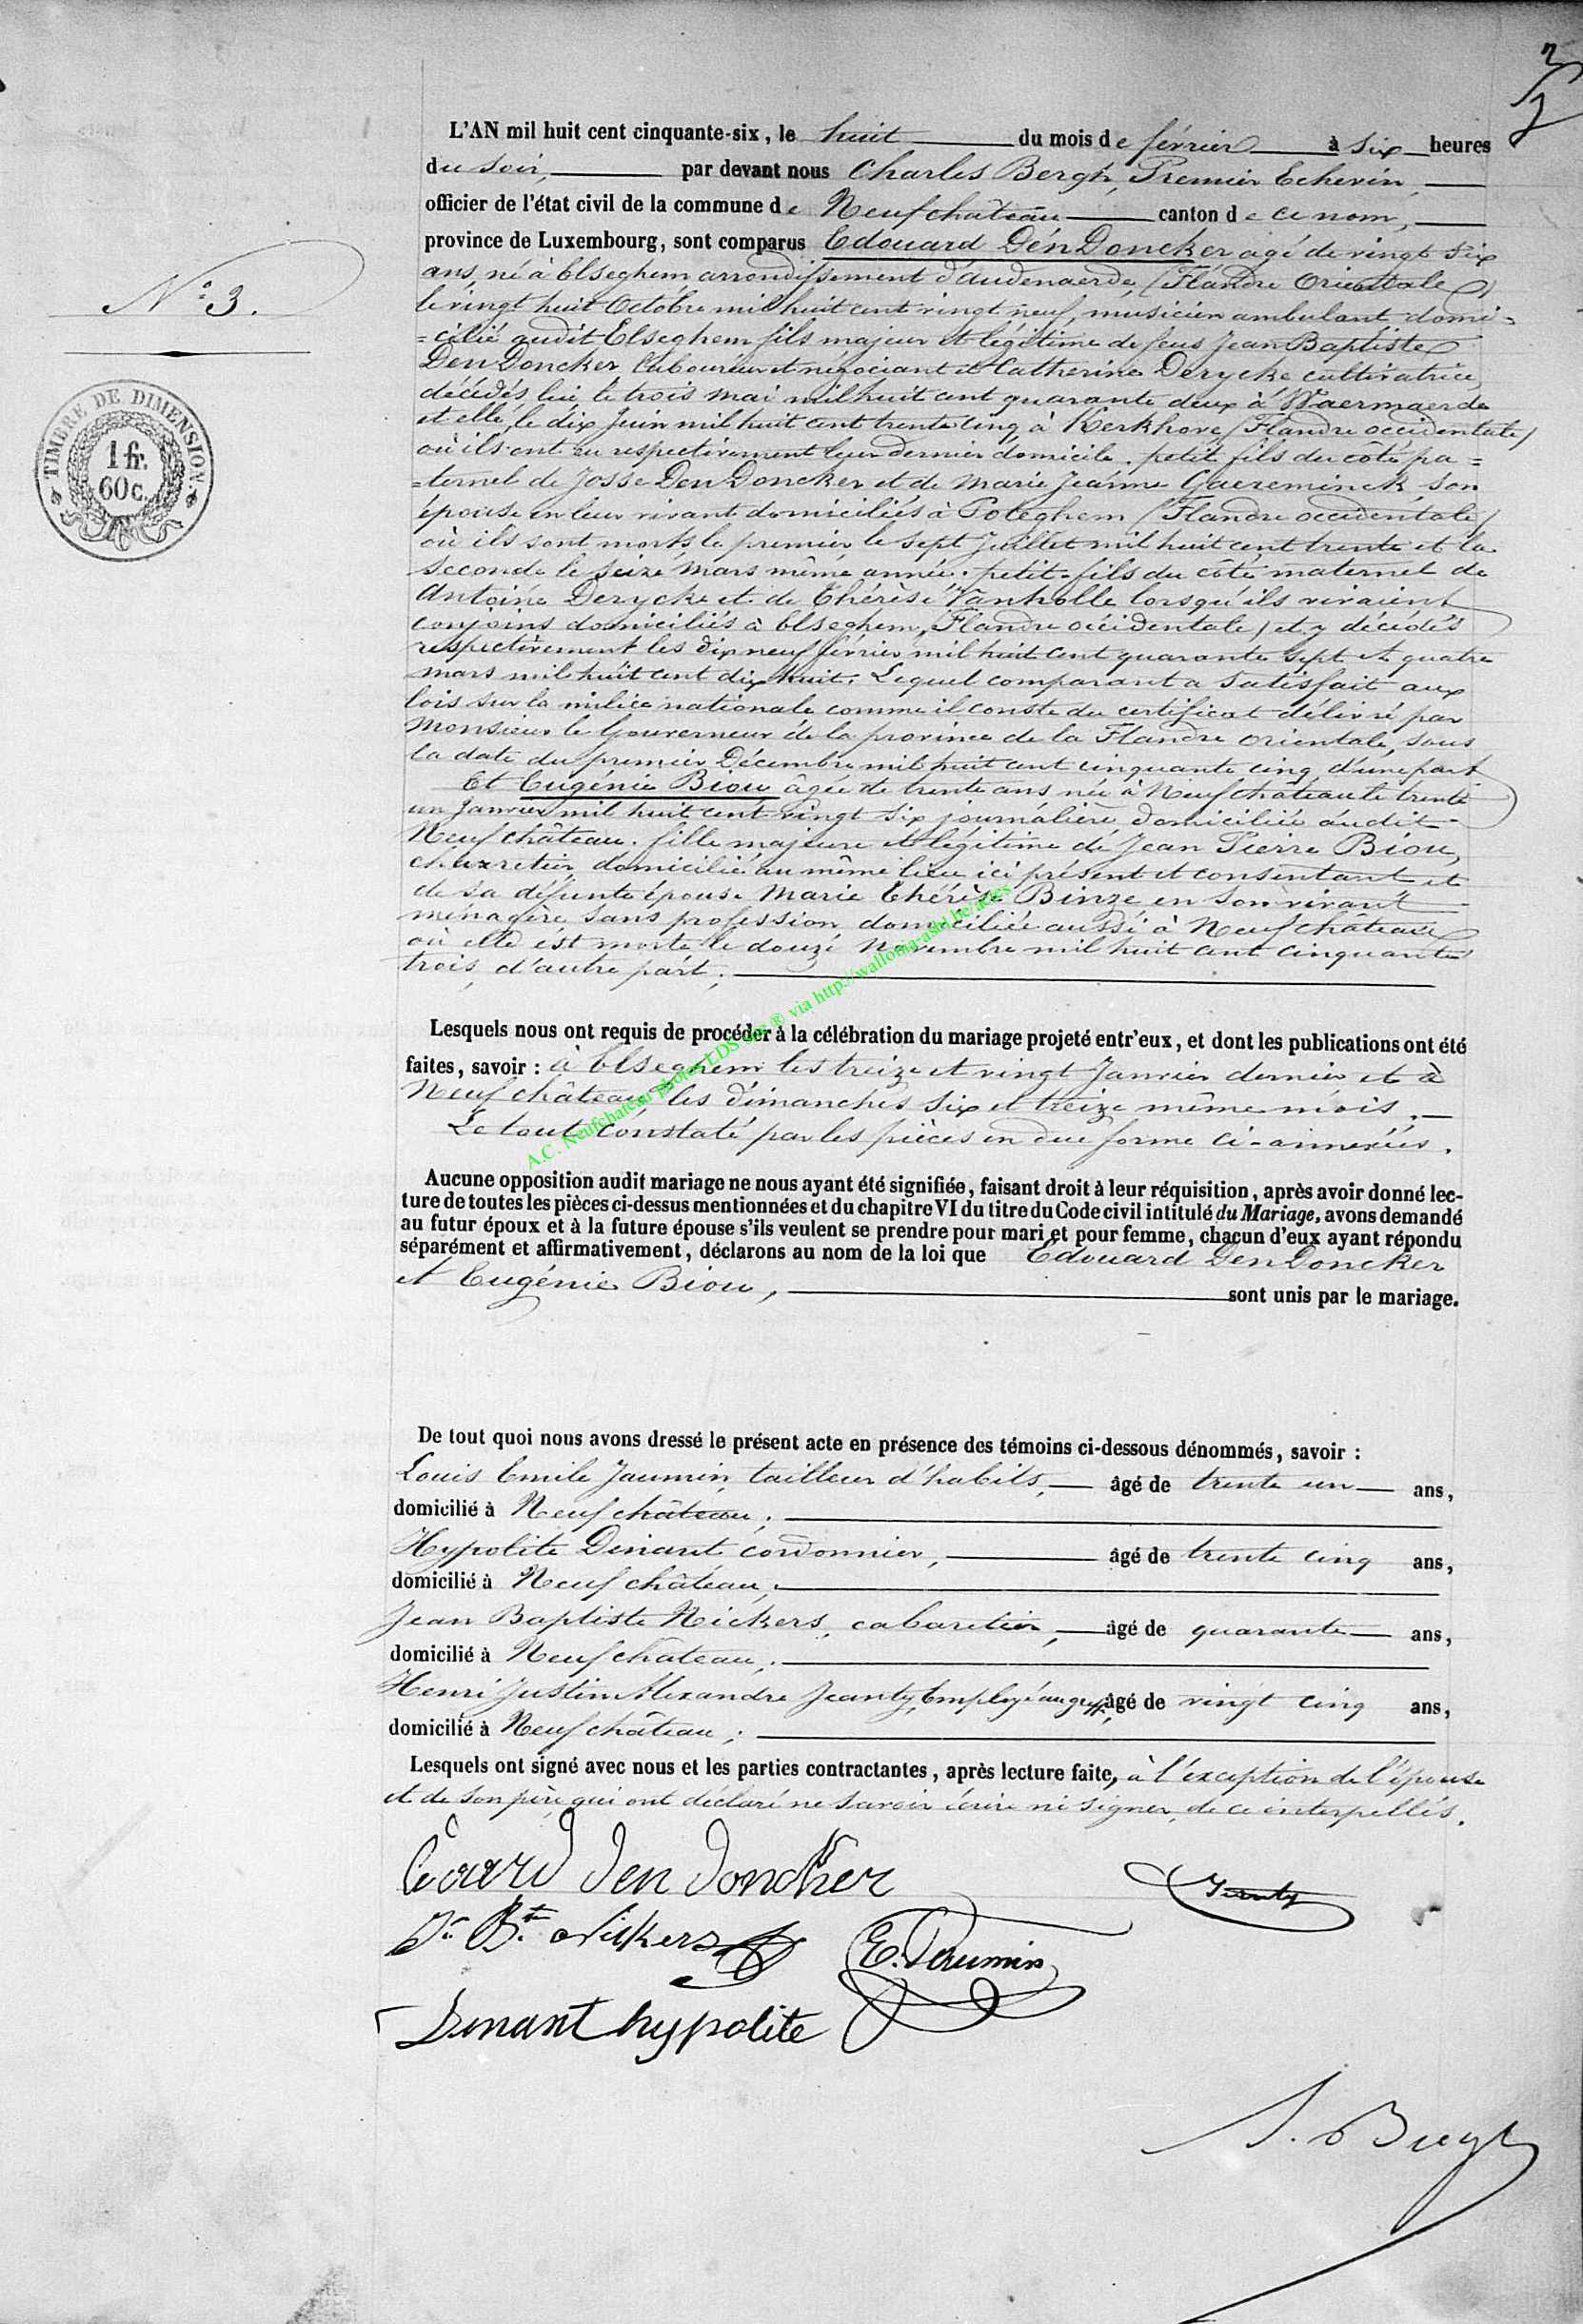 2
2
L'AN mil huit cent cinquante-six, le huit du mois de février à six heures
du soir, par devant nous Charles Bergh, Premier Echevin,
officier de l'état civil de la commune de Neufchâteau canton de ce nom,
province de Luxembourg, sont comparus Edouard Den Doncker agé de vingt six
ans, né à Elseghem arrondissement d'audenaerde, (Flandre Orientale)
le vingt huit Octobre mil huit cent vingt neuf, musicien ambulant domi=
=cilié audit Elseghem fils majeur et légitime de feus Jean Baptiste
Den Doncker laboureur et négociant et Catherine Derycke cultivatrice,
décédés lui le trois mai mil huit cent quarante deux à Waermaerde
et elle, le dix Juin mil huit cent trente cinq à Kerkhove (Flandre occidentale)
où ils ont eu respectivement leur dernier domicile. petit fils du côté pa=
=ternel de Josse Den Doncker et de Marie Jeanne Gaereminck son
épouse en leur vivant domiciliés à Poteghem (Flandre occidentale)
où ils sont morts le premier le sept Juillet mil huit cent trente et la
seconde le seize mars même année. petit-fils du côté maternel de
Antoine Derycke et de Thérèse Vanholle lorsqu'ils vivaient
conjoins domiciliés à Elseghem, Flandre occidentale) et y décédés
respectivement les dix neuf février mil huit cent quarante sept et quatre
mars mil huit cent dix huit. Lequel comparant a satisfait aux
lois sur la milice nationale comme il conste du certificat délivré par
Monsieur le Gouverneur de la province de la Flandre orientale, sous
la date du premier Décembre mil huit cent cinquante cinq, d'une part
Et Eugénie Biou âgée de trente ans née à Neufchâteau le trente
un Janvier mil huit cent vingt six journalière domiciliée audit
Neufchâteau. fille majeure et légitime de Jean Pierre Biou,
charretier domicilié au même lieu ici présent et consentant et
de sa défunte épouse Marie Thérèse Binze en son vivant
ménagère, sans profession, domiciliée aussi à Neufchâteau
où elle est morte le douze Novembre mil huit cent cinquante
trois, d'autre part;
N° 3.
TIMBRE DE DIMENSION
1 fr.
60 c.
Lesquels nous ont requis de procéder à la célébration du mariage projeté entr'eux, et dont les publications ont été
faites, savoir : à Elseghem les treize et vingt Janvier dernier et à
Neufchâteau les dimanches six et treize même mois.
Le tout constaté par les pièces en due forme ci-annexées.
A.C. Neufchateau photos LDS doc ® via http://wallonia-asbl.be/actes
Aucune opposition audit mariage ne nous ayant été signifiée, faisant droit à leur réquisition, après avoir donné lec-
ture de toutes les pièces ci-dessus mentionnées et du chapitre VI du titre du Code civil intitulé du Mariage, avons demandé
au futur époux et à la future épouse s'ils veulent se prendre pour mari et pour femme, chacun d'eux ayant répondu
séparément et affirmativement, déclarons au nom de la loi que Edouard Den Doncker
et Eugénie Biou, sont unis par le mariage.
De tout quoi nous avons dressé le présent acte en présence des témoins ci-dessous dénommés, savoir :
Louis Emile Jaumin, tailleur d'habits, âgé de trente un ans,
domicilié à Neufchâteau;
Hypolite Dinant cordonnier, âgé de trente cinq ans,
domicilié à Neufchâteau;
Jean Baptiste Nickers, cabaretier, âgé de quarante ans,
domicilié à Neufchâteau;
Henri Justin Alexandre Jeanty, Employé au greffe, âgé de vingt cinq ans,
domicilié à Neufchâteau;
Lesquels ont signé avec nous et les parties contractantes, après lecture faite, à l'exception de l'épouse
et de son père qui ont déclaré ne savoir écrire ni signer, de ce interpellés.
den doncker
Jeanty
Jn Bte Nickers
E. Jaumin
Dinant hypolite